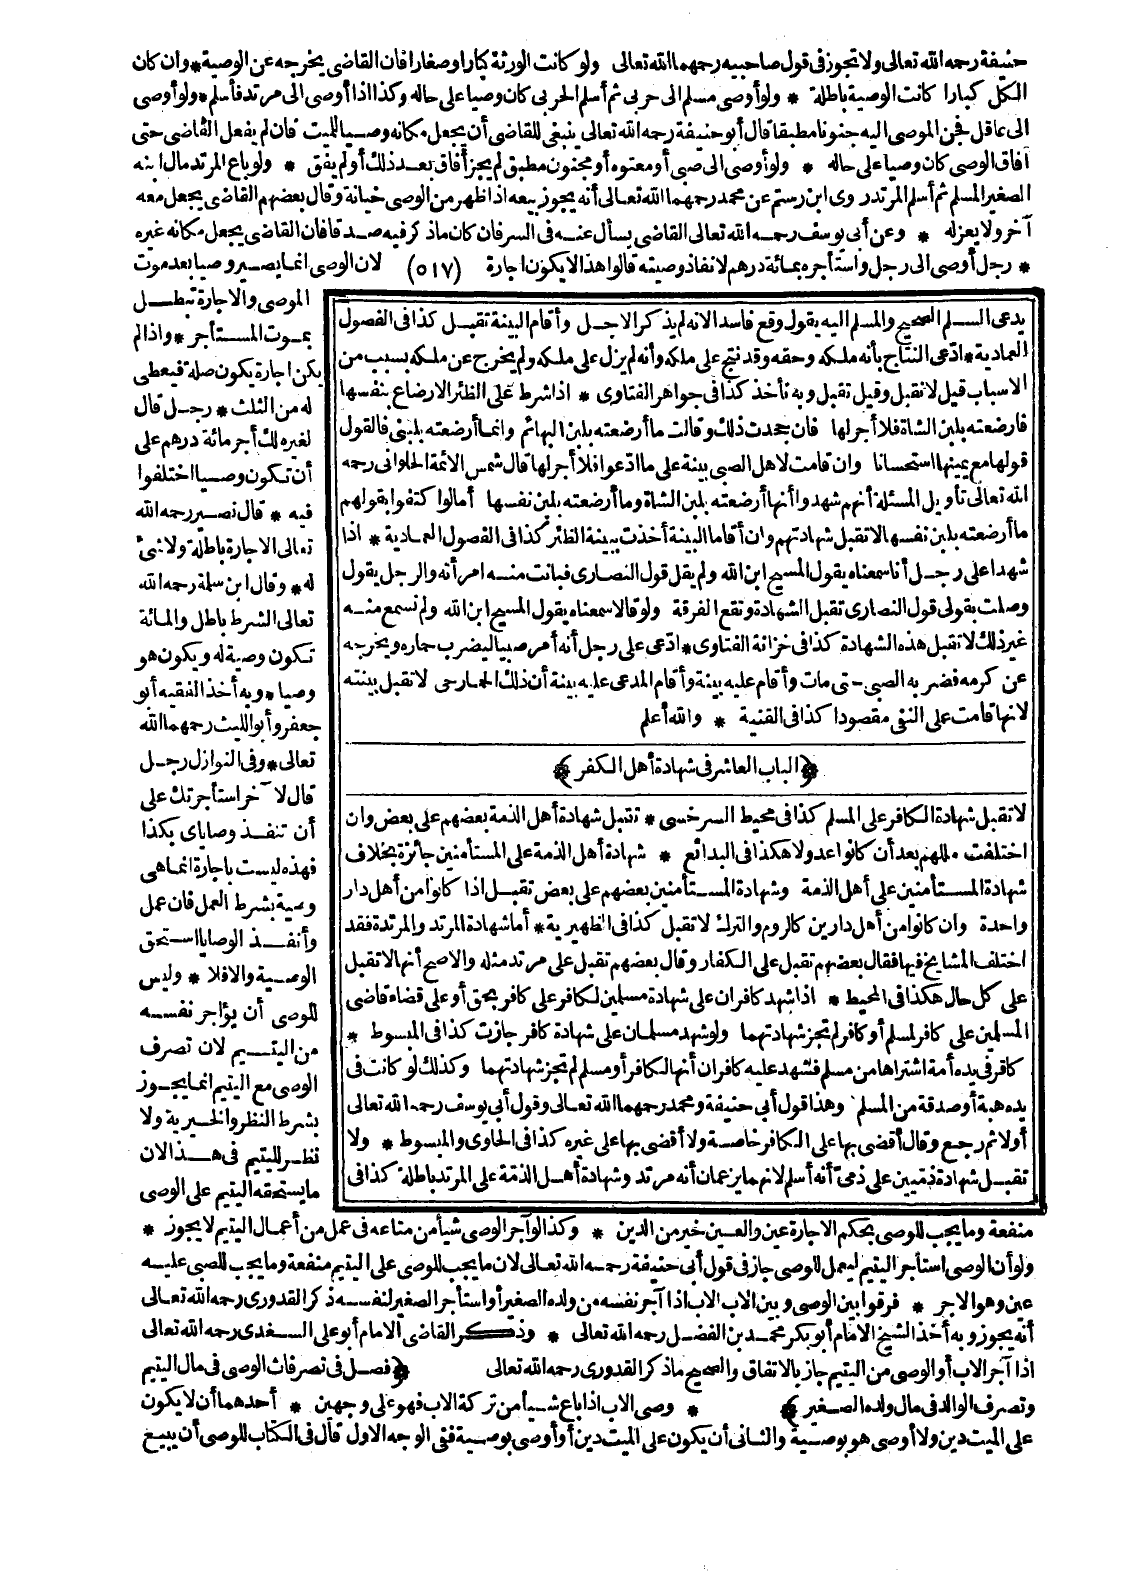 حنيفة رحمه الله تعالى ولا تجوز فى قول صاحبيه رحمهما الله تعالى ولو كانت الورثة كبارا وصغارا فان القاضى يخرجه عن الوصية * وان كان
الكل كبارا كانت الوصية باطلة * ولو أوصى مسلم الى حربى ثم أسلم الحربى كان وصيا على حاله وكذا اذا أوصى الى مرتد فأسلم * ولو أوصى
الى عاقل فجن الموصى اليه جنونا مطبقا قال أبو حنيفة رحمه الله تعالى ينبغى للقاضى أن يجعل مكانه وصيا للميت فان لم يفعل القاضى حتى
أفاق الوصى كان وصيا على حاله * ولو أوصى الى صبى أو معتوه أو مجنون مطبق لم يجز أفاق بعد ذلك أو لم يفق * ولو باع المرتد مال ابنه
الصغير المسلم ثم أسلم المرتد روى ابن رستم عن محمد رحمهما الله تعالى أنه يجوز بيعه اذا ظهر من الوصى خيانة وقال بعضهم القاضى يجعل معه
آخر ولا يعزله * وعن أبى يوسف رحمه الله تعالى القاضى يسأل عنه فى السر فان كان ما ذكر فيه صدقا فان القاضى يجعل مكانه غيره
* رجل أوصى الى رجل واستأجره بمائة درهم لانفاذ وصيته قالوا هذا لا يكون اجارة (٥١٧) لان الوصى انما يصير وصيا بعد موت
الموصى والاجارة تبطل
بموت المستأجر * واذا لم
يكن اجارة يكون صلة فيعطى
له من الثلث * رجل قال
لغيره لك أجر مائة درهم على
أن تكون وصيا اختلفوا
فيه * قال نصير رحمه الله
تعالى الاجارة باطلة ولا شئ
له * وقال ابن سلمة رحمه الله
تعالى الشرط باطل والمائة
تكون وصية له ويكون هو
وصيا * وبه أخذ الفقيه أبو
جعفر وأبو الليث رحمهما الله
تعالى * وفى النوازل رجل
قال لآخر استأجرتك على
أن تنفذ وصاياى بكذا
فهذه ليست باجارة انما هى
وصية بشرط العمل فان عمل
وأنفذ الوصايا استحق
الوصية والا فلا * وليس
للوصى أن يؤاجر نفسه
من اليتيم لان تصرف
الوصى مع اليتيم انما يجوز
بشرط النظر والخيرية ولا
نظر لليتيم فى هذا لان
ما يستحقه اليتيم على الوصى
يدعى السلم الصحيح والمسلم اليه يقول وقع فاسدا لانه لم يذكر الاجل وأقام البينة تقبل كذا فى الفصول
العمادية * ادعى النتاج بأنه ملكه وحقه وقد نتج على ملكه وأنه لم يزل على ملكه ولم يخرج عن ملكه بسبب من
الاسباب قيل لا تقبل وقيل تقبل وبه نأخذ كذا فى جواهر الفتاوى * اذا شرط على الظئر الارضاع بنفسها
فارضعته بلبن الشاة فلا أجر لها فان جحدت ذلك وقالت ما أرضعته بلبن البهائم وانما أرضعته بلبنى فالقول
قولها مع يمينها استحسانا وان قامت لاهل الصبى بينة على ما ادعوا فلا أجر لها قال شمس الائمة الحلوانى رحمه
الله تعالى تأويل المسئلة أنهم شهدوا أنها أرضعته بلبن الشاة وما أرضعته بلبن نفسها أما لو اكتفوا بقولهم
ما أرضعته بلبن نفسها لا تقبل شهادتهم وان أقاما البينة أخذت ببينة الظئر كذا فى الفصول العمادية * اذا
شهدا على رجل أنا سمعناه يقول المسيح ابن الله ولم يقل قول النصارى فبانت منه امرأته والرجل يقول
وصلت بقولى قول النصارى تقبل الشهادة وتقع الفرقة ولو قالا سمعناه يقول المسيح ابن الله ولم نسمع منه
غير ذلك لا تقبل هذه الشهادة كذا فى خزانة الفتاوى * ادعى على رجل أنه أمر صبيا ليضرب حماره ويخرجه
عن كرمه فضربه الصبى حتى مات وأقام عليه بينة وأقام المدعى عليه بينة أن ذلك الحمار حى لا تقبل بينته
لانها قامت على النفى مقصودا كذا فى القنية * والله أعلم
﴿الباب العاشر فى شهادة أهل الكفر﴾
لا تقبل شهادة الكافر على المسلم كذا فى محيط السرخسى * تقبل شهادة أهل الذمة بعضهم على بعض وان
اختلفت مللهم بعد أن كانوا عدولا هكذا فى البدائع * شهادة أهل الذمة على المستأمنين جائزة بخلاف
شهادة المستأمنين على أهل الذمة وشهادة المستأمنين بعضهم على بعض تقبل اذا كانوا من أهل دار
واحدة وان كانوا من أهل دارين كالروم والترك لا تقبل كذا فى الظهيرية * أما شهادة المرتد والمرتدة فقد
اختلف المشايخ فيها فقال بعضهم تقبل على الكفار وقال بعضهم تقبل على مرتد مثله والاصح أنها لا تقبل
على كل حال هكذا فى المحيط * اذا شهد كافران على شهادة مسلمين لكافر على كافر بحق أو على قضاء قاضى
المسلمين على كافر لمسلم أو كافر لم تجز شهادتهما ولو شهد مسلمان على شهادة كافر جازت كذا فى المبسوط *
كافر فى يده أمة اشتراها من مسلم فشهد عليه كافران أنها لكافر أو مسلم لم تجز شهادتهما وكذلك لو كانت فى
يده هبة أو صدقة من المسلم وهذا قول أبى حنيفة ومحمد رحمهما الله تعالى وقول أبى يوسف رحمه الله تعالى
أولا ثم رجع وقال أقضى بها على الكافر خاصة ولا أقضى بها على غيره كذا فى الحاوى والمبسوط * ولا
تقبل شهادة ذميين على ذمى أنه أسلم لانهما يزعمان أنه مرتد وشهادة أهل الذمة على المرتد باطلة كذا فى
منفعة وما يجب للوصى بحكم الاجارة عين والعين خير من الدين * وكذا لو آجر الوصى شيأ من متاعه فى عمل من أعمال اليتيم لا يجوز *
ولو أن الوصى استأجر اليتيم ليعمل للوصى جاز فى قول أبى حنيفة رحمه الله تعالى لان ما يجب للوصى على اليتيم منفعة وما يجب للصبى عليه
عين وهو الاجر * فرقوا بين الوصى وبين الاب الاب اذا آجر نفسه من ولده الصغير أو استأجر الصغير لنفسه ذكر القدورى رحمه الله تعالى
أنه يجوز وبه أخذ الشيخ الامام أبو بكر محمد بن الفضل رحمه الله تعالى * وذكر القاضى الامام أبو على السغدى رحمه الله تعالى
اذا آجر الاب أو الوصى من اليتيم جاز بالاتفاق والصحيح ما ذكر القدورى رحمه الله تعالى ﴿فصل فى تصرفات الوصى فى مال اليتيم
وتصرف الوالد فى مال ولده الصغير﴾ * وصى الاب اذا باع شيأ من تركة الاب فهو على وجهين * أحدهما أن لا يكون
على الميت دين ولا أوصى هو بوصية والثانى أن يكون على الميت دين أو أوصى بوصية ففى الوجه الاول قال فى الكتاب للوصى أن يبيع